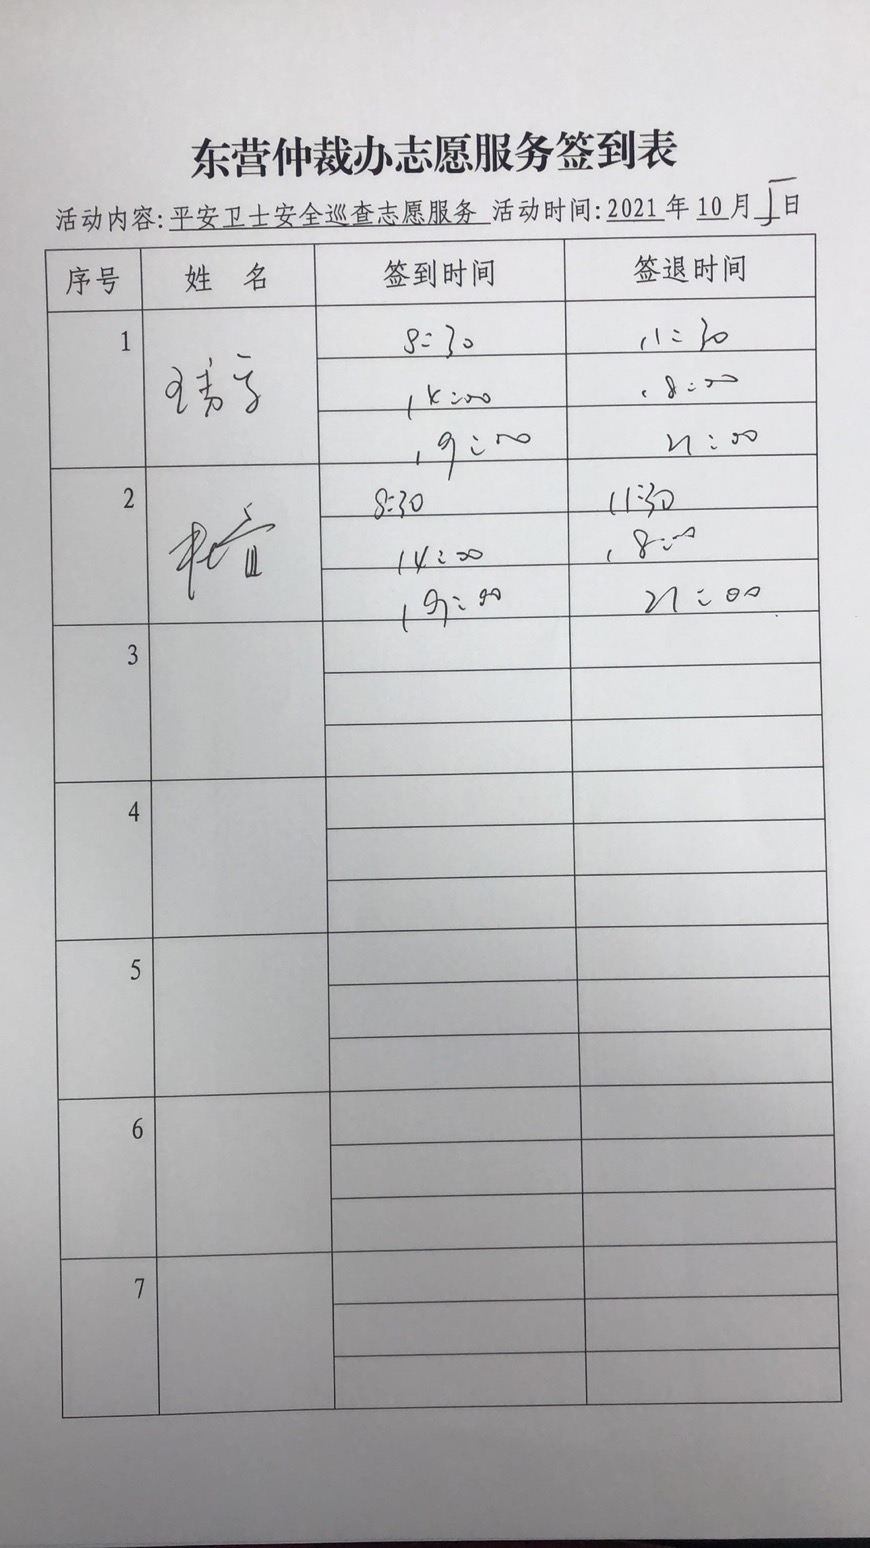 东营仲裁办志愿服务签到表
活动内容:平安卫士安全巡查志愿服务 活动时间:2021年10月5日
序号 姓 名 签到时间 签退时间
1 8:30 11:30
14:00 18:00
19:00 21:00
2 8:30 11:30
14:00 18:00
19:00 21:00
3
4
5
6
7